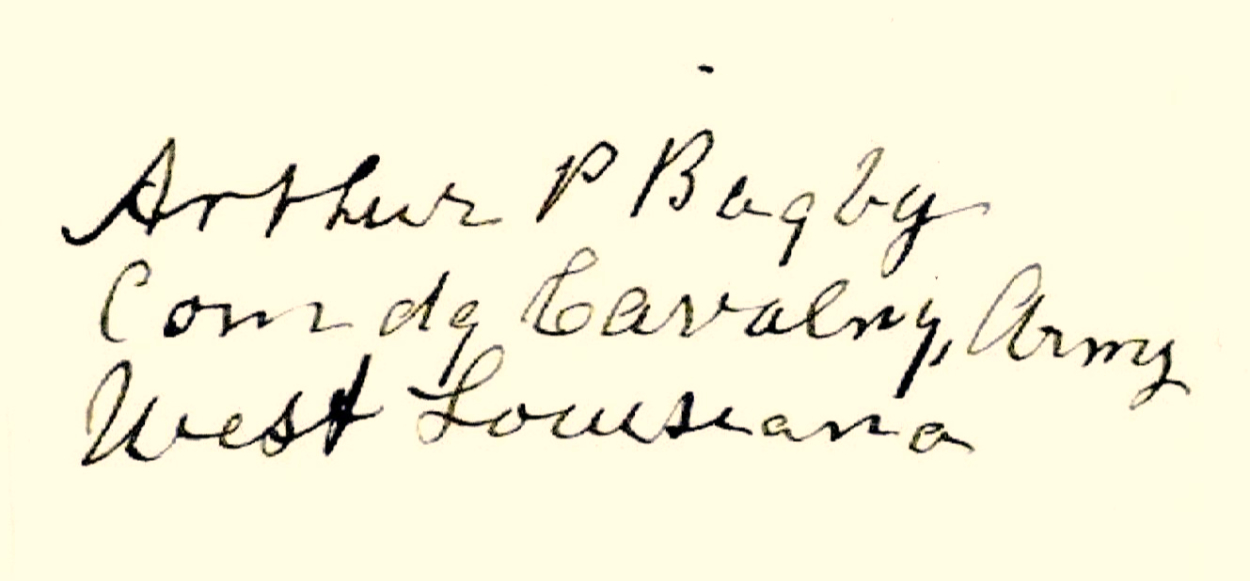 Arthur P Bagby
Comdg Cavalry, Army
West Louisiana